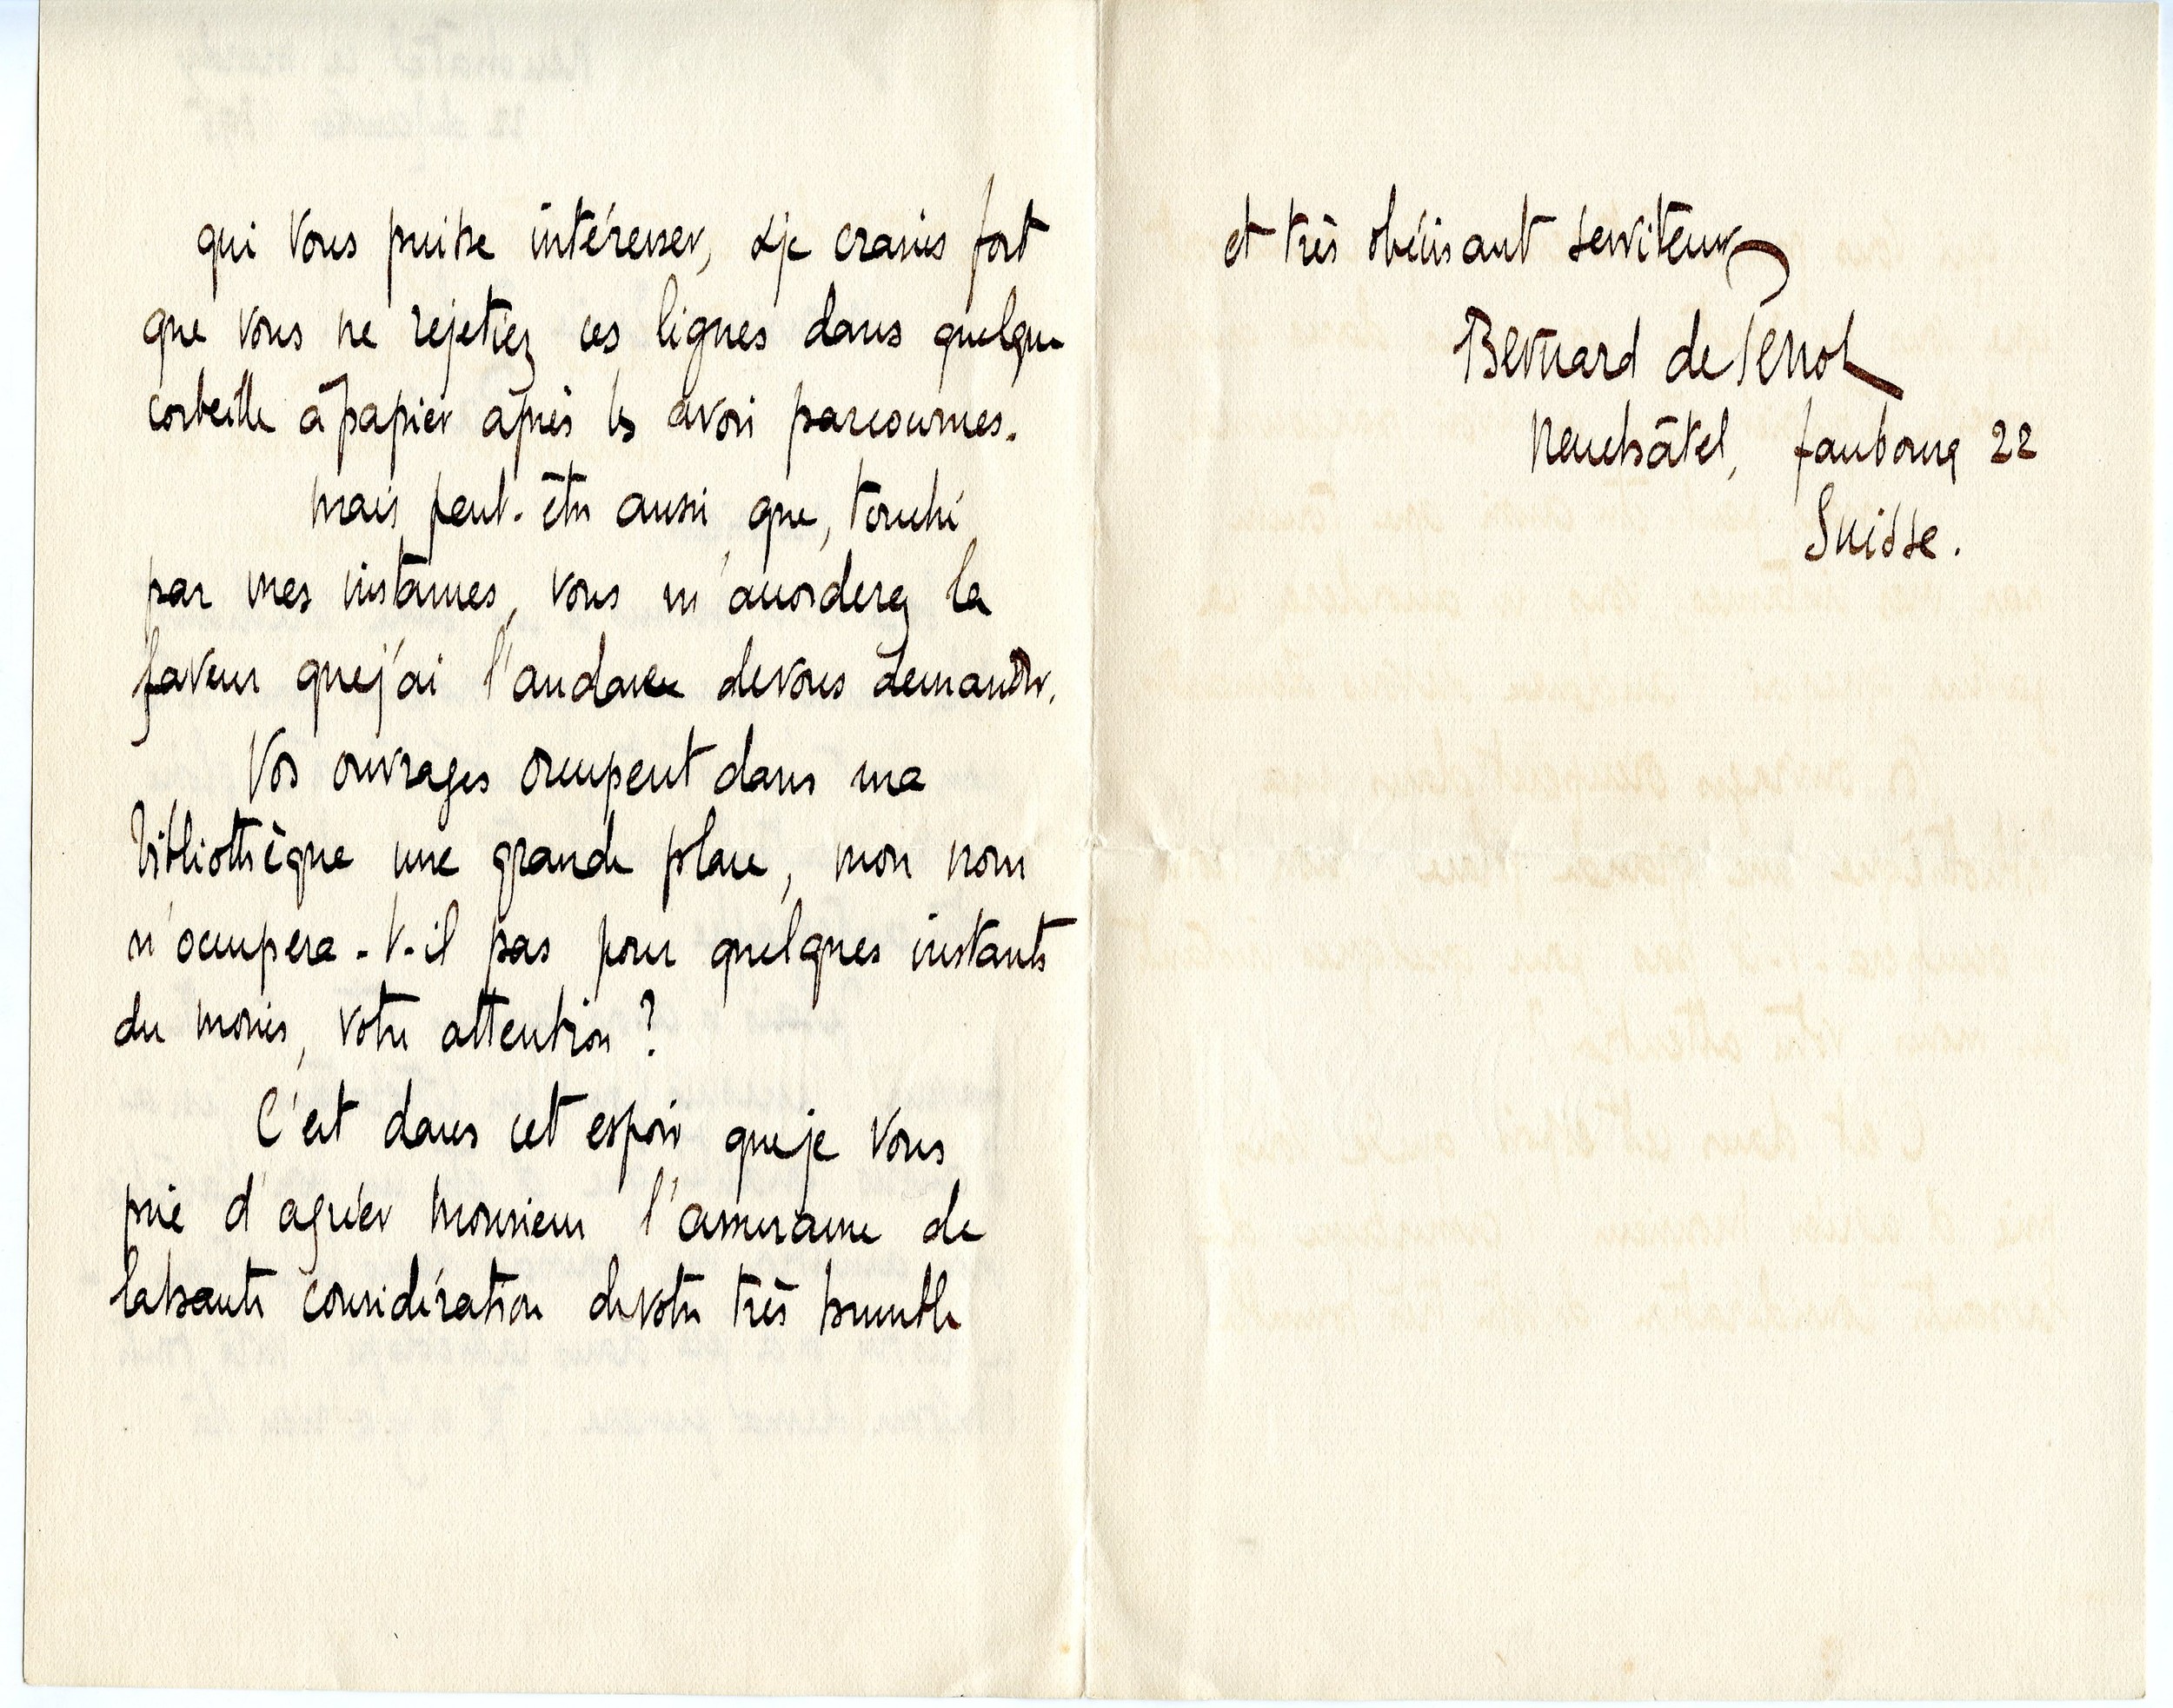 qui vous puisse intéresser, & je crains fort
que vous ne rejetiez ces lignes dans quelque
corbeille à papier après les avoir parcourues.
Mais peut-être aussi que, touché
par mes instances, vous m'accorderez la
faveur que j'ai l'audace de vous demander.
Vos ouvrages occupent dans ma
bibliothèque une grande place, mon nom
n'occupera-t-il pas pour quelques instants
du moins, votre attention ?
C'est dans cet espoir que je vous
prie d'agréer Monsieur l'assurance de
la haute considération de votre très humble
et très obéissant serviteur
Bernard de Perrot
Neuchâtel, faubourg 22
Suisse.